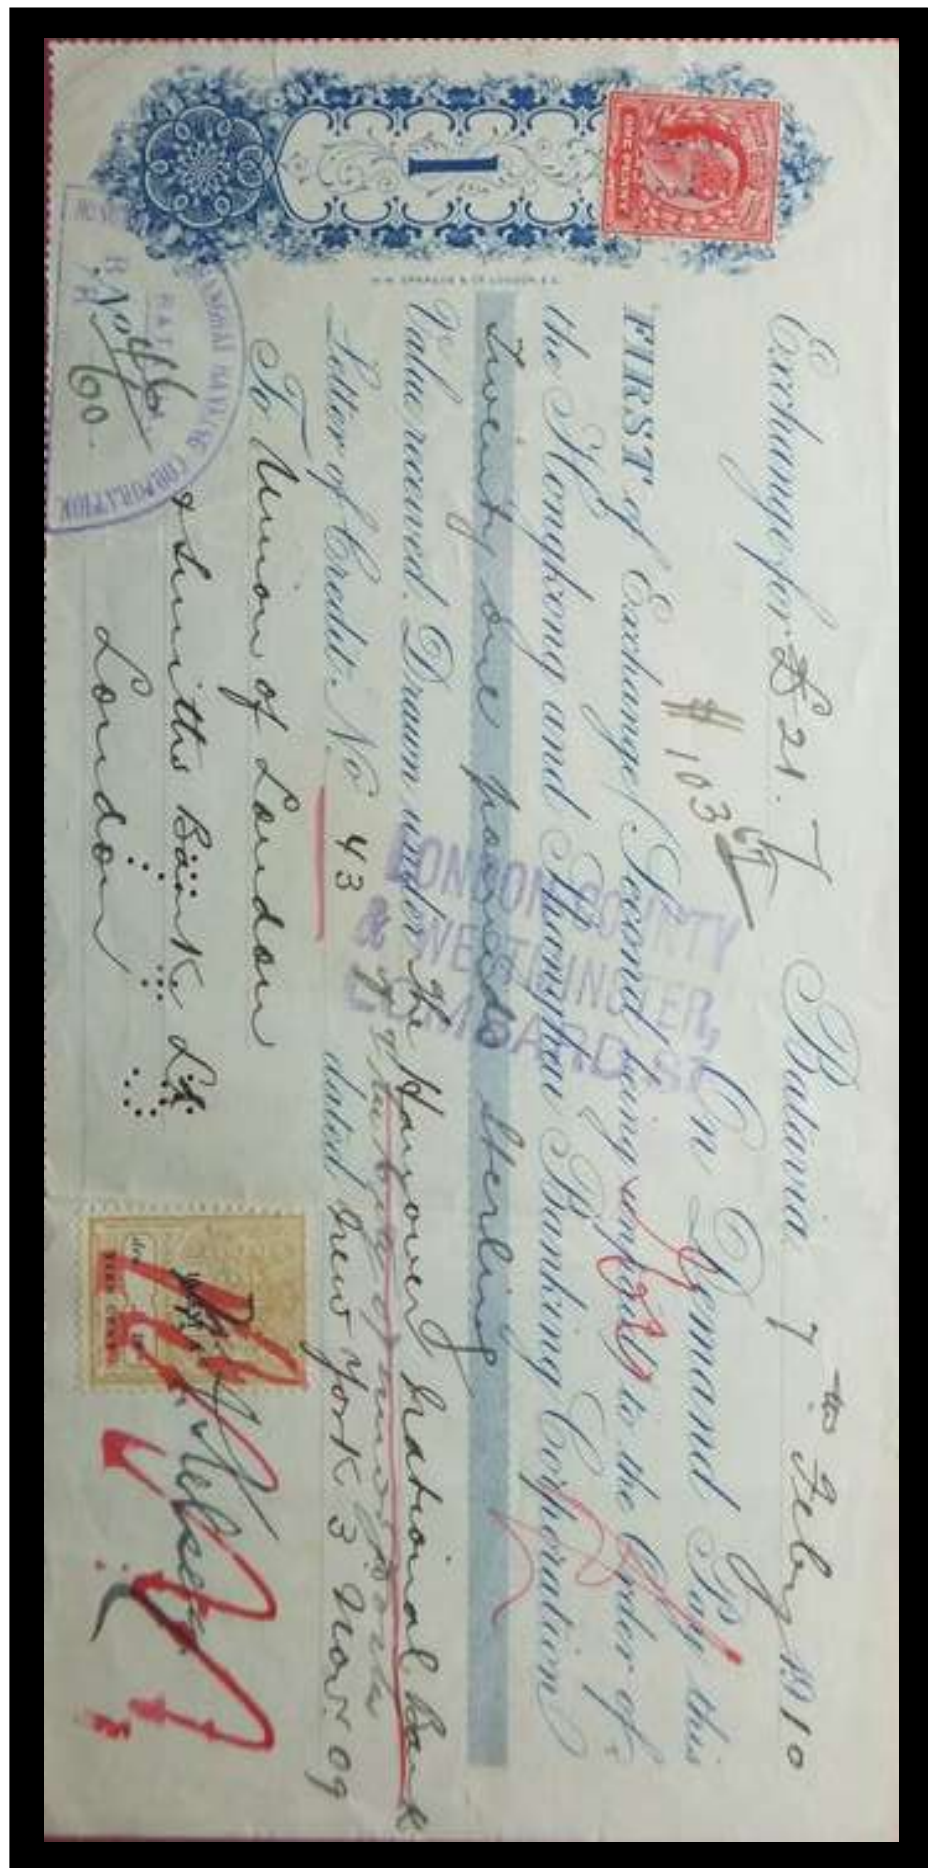 Exchange for £ 21. Batavia 7th Feby 1910
$ 103
On Demand Pay this
FIRST of Exchange (Second being unpaid) to the Order of
the Hongkong and Shanghai Banking Corporation
twenty one pounds Sterling
Value received. Drawn under the Hanover National Bank
Letter of Credit. No. 43 dated New York 3 Nov. 09
To Union of London
& Smiths Bank Ld
London
LONDON COUNTY
& WESTMINSTER,
LOMBARD ST
I
No. 4/60